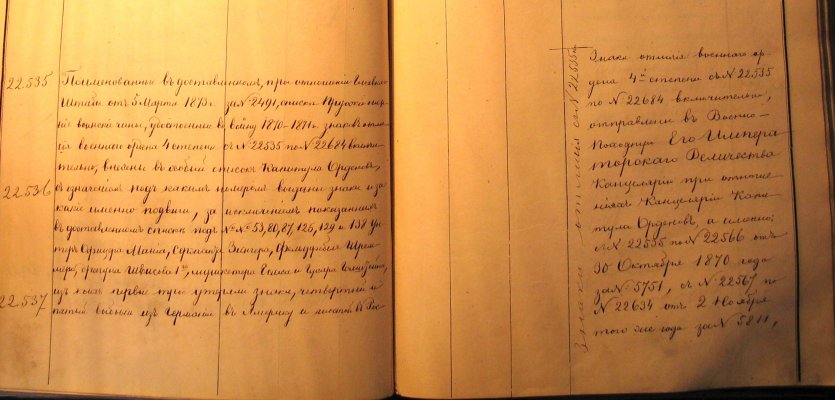 22.535
Поименованные въ доставленномъ, при отношеніи Главнаго
Штаба отъ 5 Марта 1873 г. за № 2491, списки Прусскіе ниж-
ніе воинскіе чины, удостоенные въ войну 1870-1871 г. знаковъ отли-
чія военнаго ордена 4 степени съ № 22535 по № 22684 включи-
тельно, внесены въ особый списокъ Капитула Орденовъ,
22.536
съ значеніемъ подъ какимъ номеромъ выданы знаки и за
какіе именно подвиги, за исключеніемъ показанныхъ
въ доставленномъ списке подъ №№ 53, 80, 87, 125, 129 и 138 Ун-
теръ Офицера
22.537
изъ коихъ первые трое утеряли знаки, четвертый и
пятый выбыли изъ Германіи въ Америку и
Знаки отличія съ № 22535
Знаки отличія военнаго ор-
дена 4й степени съ № 22535
по № 22684 включительно,
отправлены въ Военно-
Походную Его Импера
торскаго Величества
Канцелярію при отноше-
ніяхъ Канцеляріи Капи-
тула Орденовъ, а именно:
съ № 22535 по № 22566 отъ
30 Октября 1870 года
за № 5751, съ № 22567 по
№ 22634 отъ 2 Ноября
того же года за № 5811,